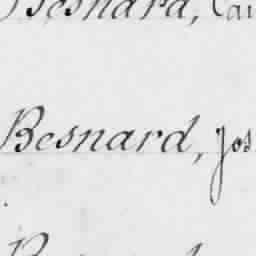 Besnard, Cau
Besnard, Jos